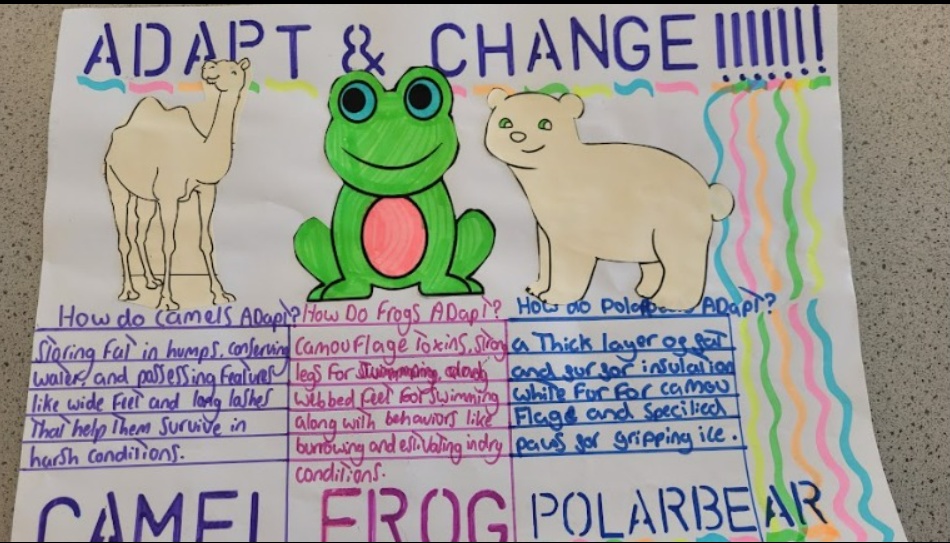 ADAPT & CHANGE !!!!!!!
How do camels ADapt?
Storing Fat in humps, conserving
water, and possessing Features
like wide Feet and long lashes
That help Them survive in
harsh conditions.
How Do Frogs ADapt?
Camouflage Toxins, strong
legs For
webbed feet For Swimming
along with behaviors like
burrowing and estivating in dry
conditions.
How do ADapt?
a Thick layer of fat
and fur for insulation
white Fur For camou
Flage and Specilied
paws for gripping ice.
CAMEL
FROG
POLARBEAR